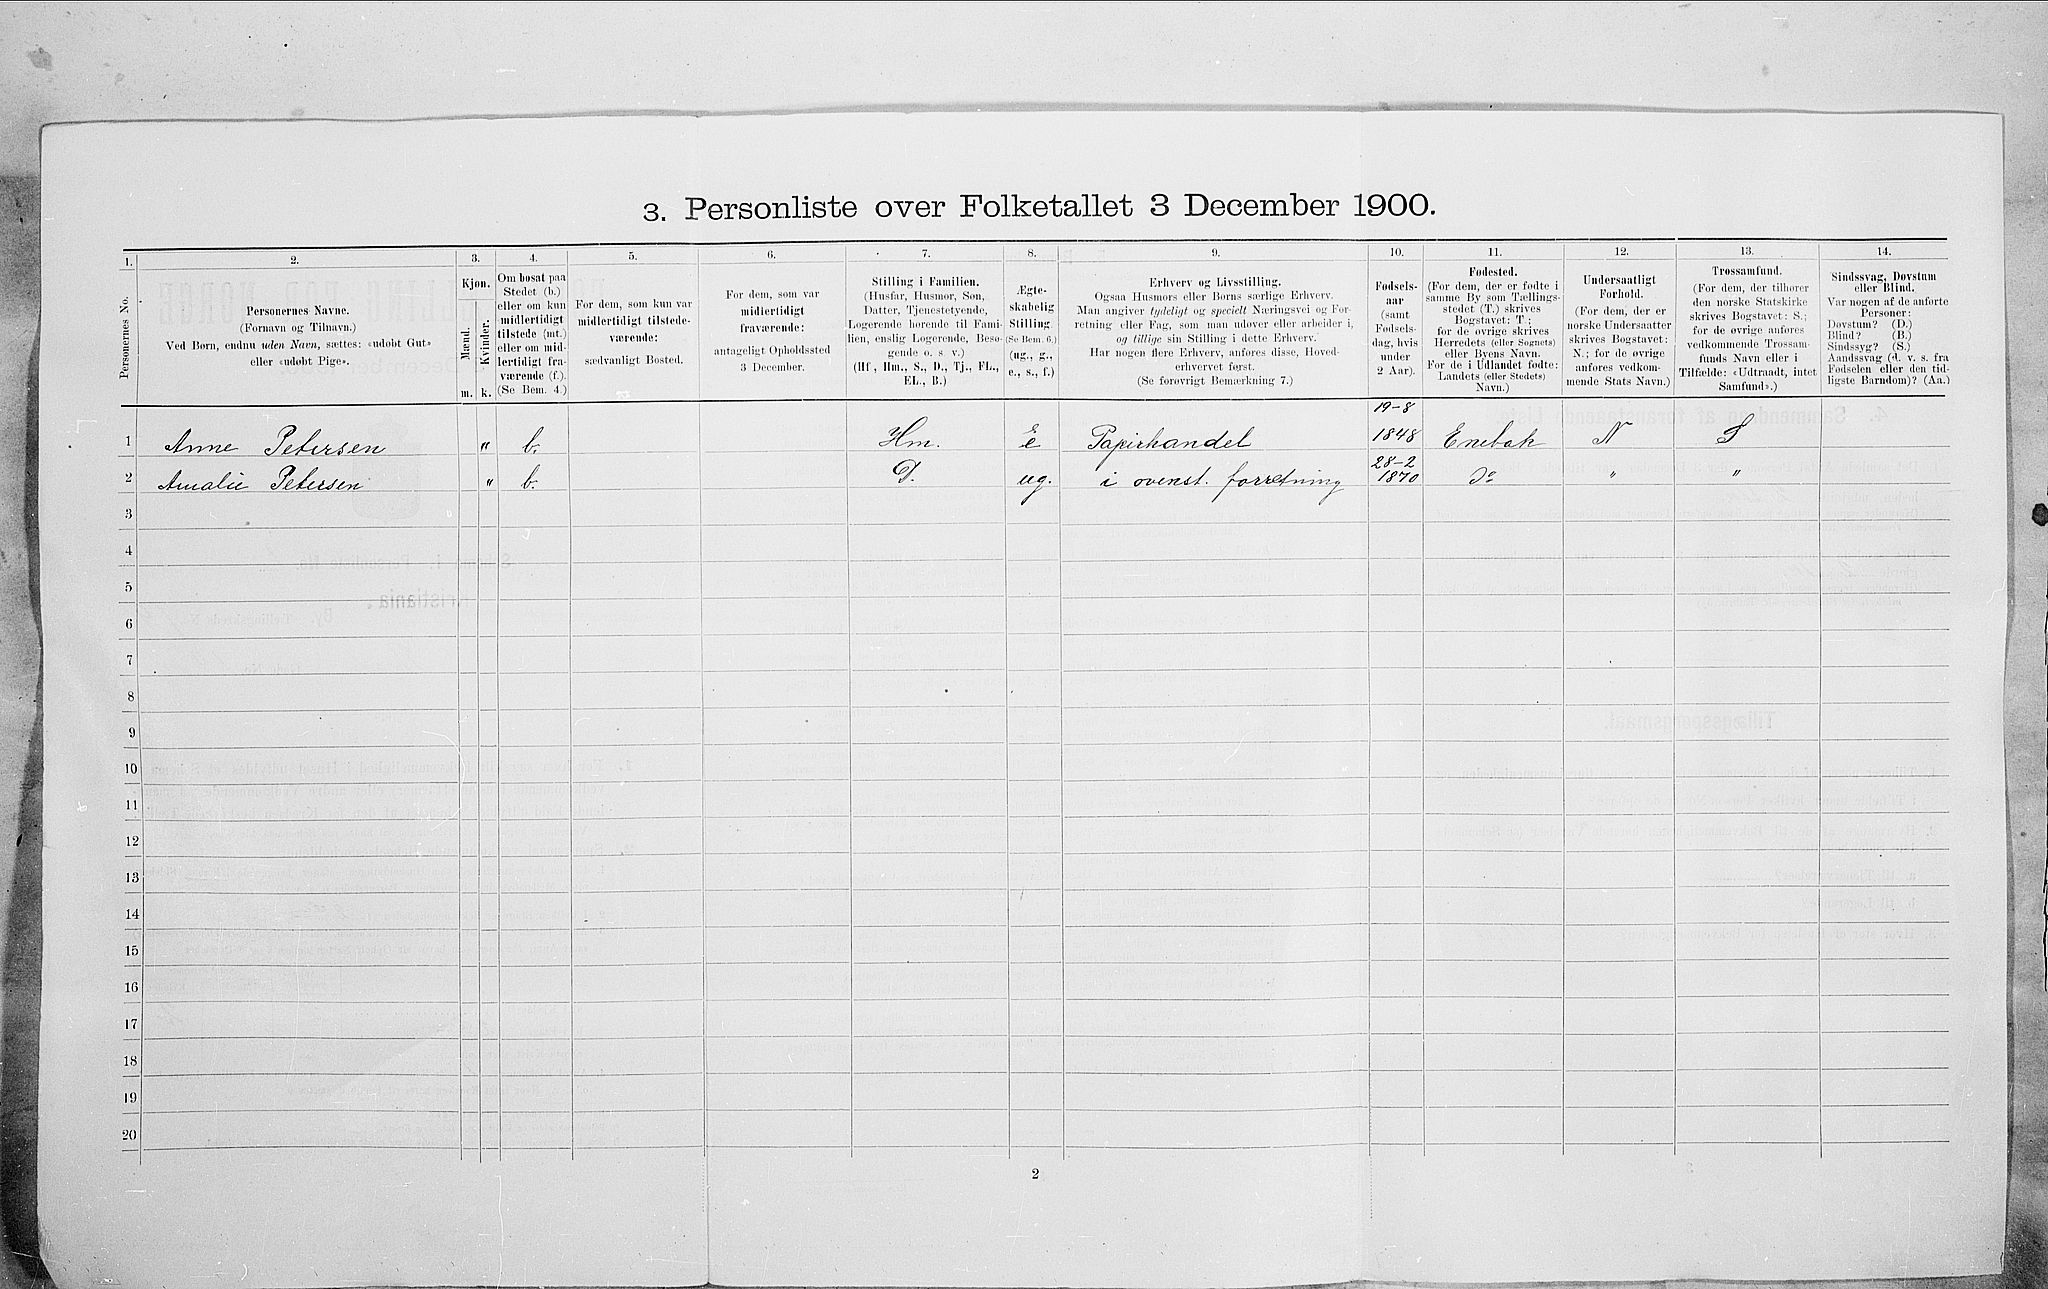 3. Personliste over Folketallet 3 December 1900.
1.
Personernes No.
2.
Personernes Navne.
(Fornavn og Tilnavn.)
Ved Børn, endnu uden Navn, sættes: «udøbt Gut»
eller «udøbt Pige».
3.
Kjøn.
Mænd.
Kvinder.
m. k.
4.
Om bosat paa
Stedet (b.)
eller om kun
midlertidigt
tilstede (mt.)
eller om mid-
lertidigt fra-
værende (f.).
(Se Bem. 4.)
5.
For dem, som kun var
midlertidigt tilstede-
værende:
sædvanligt Bosted.
6.
For dem, som var
midlertidigt
fraværende:
antageligt Opholdssted
3 December.
7.
Stilling i Familien.
(Husfar, Husmor, Søn,
Datter, Tjenestetyende,
Logerende hørende til Fami-
lien, enslig Logerende, Besø-
gende o. s. v.)
(Hf., Hm., S., D., Tj., FL.,
EL., B.)
8.
Ægte-
skabelig
Stilling.
(Se Bem. 6.)
(ug., g.,
e., s., f.)
9.
Erhverv og Livsstilling.
Ogsaa Husmors eller Børns særlige Erhverv.
Man angiver tydeligt og specielt Næringsvei og For-
retning eller Fag, som man udøver eller arbeider i,
og tillige sin Stilling i dette Erhverv.
Har nogen flere Erhverv, anføres disse, Hoved-
erhvervet først.
(Se forøvrigt Bemærkning 7.)
10.
Fødsels-
aar
(samt
Fødsels-
dag, hvis
under
2 Aar).
11.
Fødested.
(For dem, der er fødte i
samme By som Tællings-
stedet (T.) skrives
Bogstavet: T;
for de øvrige skrives
Herredets (eller Sognets)
eller Byens Navn.
For de i Udlandet fødte:
Landets (eller Stedets)
Navn.)
12.
Undersaatligt
Forhold.
(For dem, der er
norske Undersaatter
skrives Bogstavet:
N.; for de øvrige
anføres vedkom-
mende Stats Navn.)
13.
Trossamfund.
(For dem, der tilhører
den norske Statskirke
skrives Bogstavet: S.;
for de øvrige anføres
vedkommende Trossam-
funds Navn eller i
Tilfælde: «Udtraadt, intet
Samfund».)
14.
Sindssvag, Døvstum
eller Blind.
Var nogen af de anførte
Personer:
Døvstum? (D.)
Blind? (B.)
Sindssyg? (S.)
Aandssvag (d. v. s. fra
Fødselen eller den tid-
ligste Barndom)? (Aa.)
19-8
1 Anne Petersen " b. Hm. e Papirhandel 1848 Enebak N S
28-2
2 Amalie Petersen " b. D. ug. i ovenst. forretning 1870 do " "
3
4
5
6
7
8
9
10
11
12
13
14
15
16
17
18
19
20
2